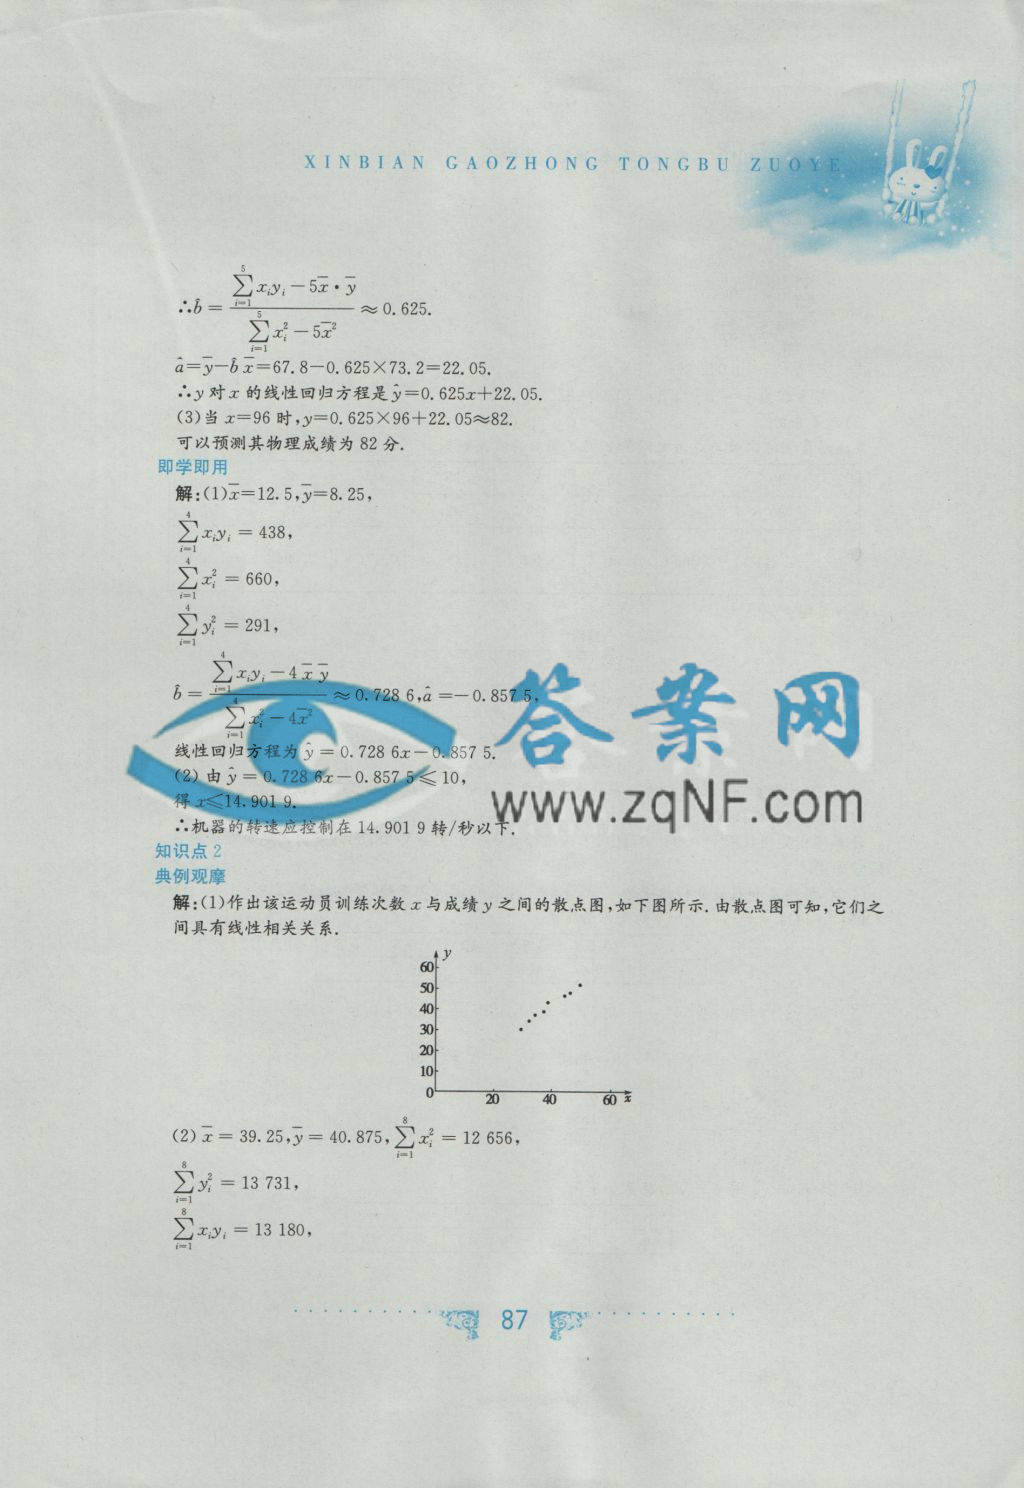 XINBIAN GAOZHONG TONGBU ZUOYE
∴b̂ = (∑_{i=1}^{5} x_i y_i − 5x̄·ȳ) / (∑_{i=1}^{5} x_i² − 5x̄²) ≈ 0.625.
â=ȳ−b̂ x̄=67.8−0.625×73.2=22.05.
∴y 对 x 的线性回归方程是 ŷ=0.625x+22.05.
(3)当 x=96 时,y=0.625×96+22.05≈82.
可以预测其物理成绩为 82 分.
即学即用
解:(1)x̄=12.5,ȳ=8.25,
∑_{i=1}^{4} x_i y_i = 438,
∑_{i=1}^{4} x_i² = 660,
∑_{i=1}^{4} y_i² = 291,
b̂ = (∑_{i=1}^{4} x_i y_i − 4 x̄ ȳ) / (∑_{i=1}^{4} x_i² − 4x̄²) ≈ 0.728 6,â =−0.857 5,
线性回归方程为 ŷ = 0.728 6x−0.857 5.
(2)由 ŷ = 0.728 6x−0.857 5⩽10,
得 x⩽14.901 9.
∴机器的转速应控制在 14.901 9 转/秒以下.
答案网
www.zqNF.com
知识点 2
典例观摩
解:(1)作出该运动员训练次数 x 与成绩 y 之间的散点图,如下图所示.由散点图可知,它们之
间具有线性相关关系.
y
60
50
40
30
20
10
0
20 40 60 x
(2) x̄ = 39.25,ȳ = 40.875,∑_{i=1}^{8} x_i² = 12 656,
∑_{i=1}^{8} y_i² = 13 731,
∑_{i=1}^{8} x_i y_i = 13 180,
87